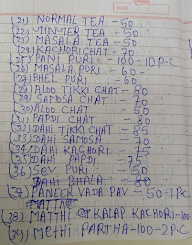 (21) NORMAL TEA - 50
(22) MINTER TEA - 50
(23) MASALA TEA - 50
(24) KACHORI CHAT - 75
(25) PANI PURI - 100 - 10 PC
(26) MASALA PURI - 60
(27) BHEL PURI - 60
(28) ALOO TIKKI CHAT - 80
(29) SAMOSA CHAT - 70
(30) ALOO CHAT - 50
(31) PAPDI CHAT - 80
(32) DAHI TIKKI CHAT - 85
(33) DAHI SAMOSA - 70
(34) DAHI KACHORI - 75
(35) DAHI PAPDI - 75
(36) SEV PURI - 50
DAHI BHALA - 80
(37) PANEER VADA PAV - 50 1PC
MATTA
(38) MATTHI KALAP KACHORI
(39) Methi PARTHA - 100 - 2 PC